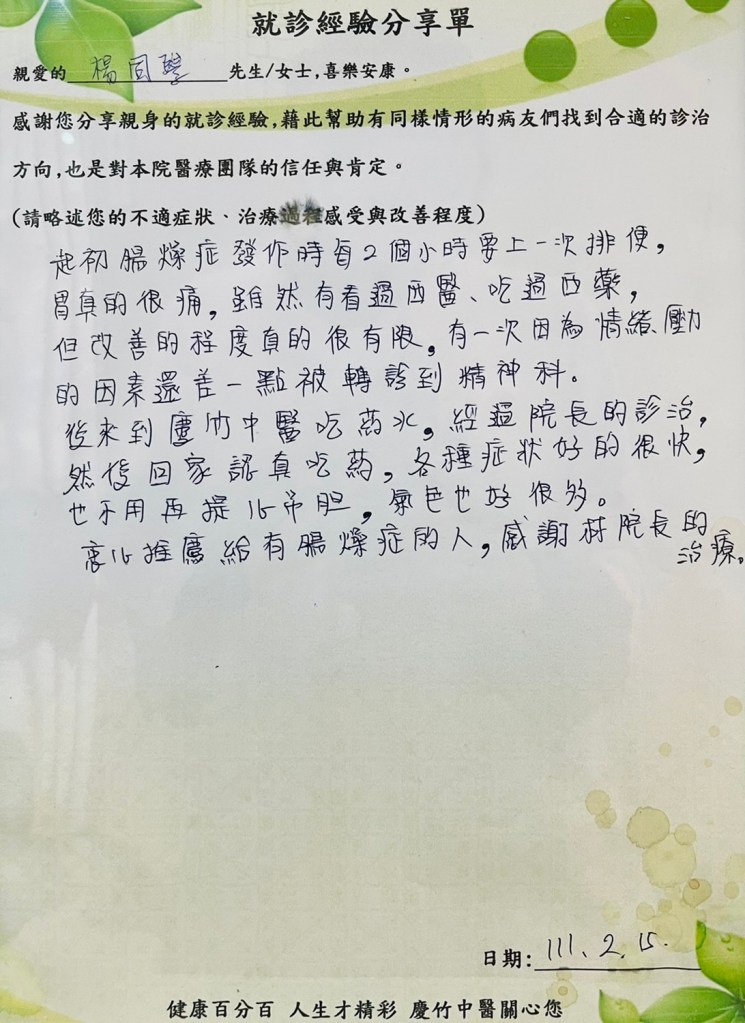 就診經驗分享單
親愛的 楊同學 先生/女士,喜樂安康。
感謝您分享親身的就診經驗,藉此幫助有同樣情形的病友們找到合適的診治
方向,也是對本院醫療團隊的信任與肯定。
(請略述您的不適症狀、治療過程感受與改善程度)
起初腸燥症發作時每2個小時要上一次排便,
胃真的很痛,雖然有看過西醫、吃過西藥,
但改善的程度真的很有限。有一次因為情緒、壓力
的因素還差一點被轉診到精神科。
後來到慶竹中醫吃药水,經過院長的診治,
然後回家認真吃药,各種症狀好的很快,
也不用再提心吊胆,氣色也好很多。
衷心推薦給有腸燥症的人,感謝林院長的
治療。
日期: 111.2.15.
健康百分百 人生才精彩 慶竹中醫關心您